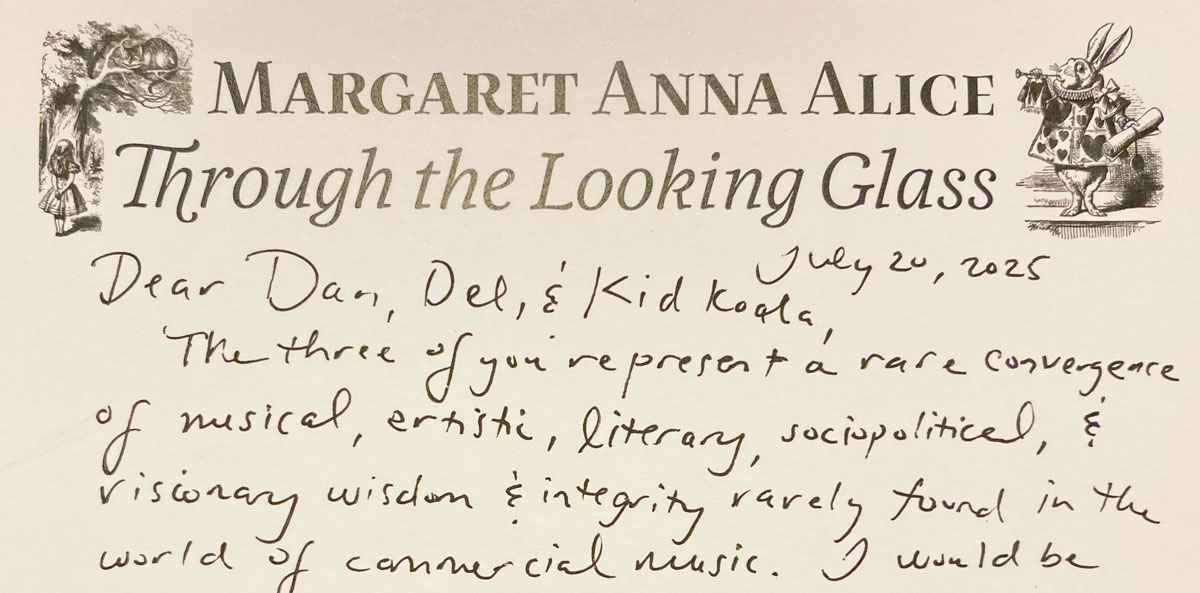 MARGARET ANNA ALICE
Through the Looking Glass
July 20, 2025
Dear Dan, Del, & Kid Koala,
The three of you represent a rare convergence
of musical, artistic, literary, sociopolitical, &
visionary wisdom & integrity rarely found in the
world of commercial music. I would be